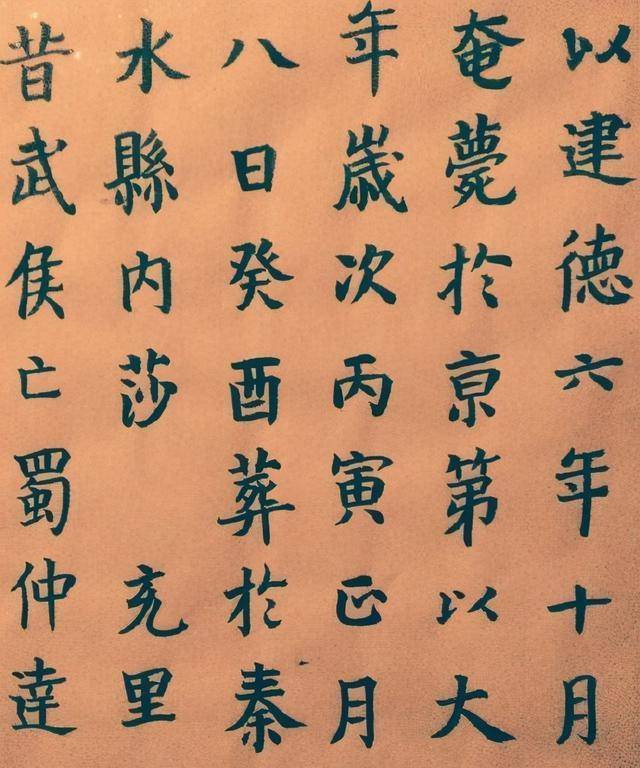 以建德六年十月
奄薨於亰第以大
年歲次丙寅正月
八日癸酉葬於秦
水縣内莎 充里
昔武侯亡蜀仲達